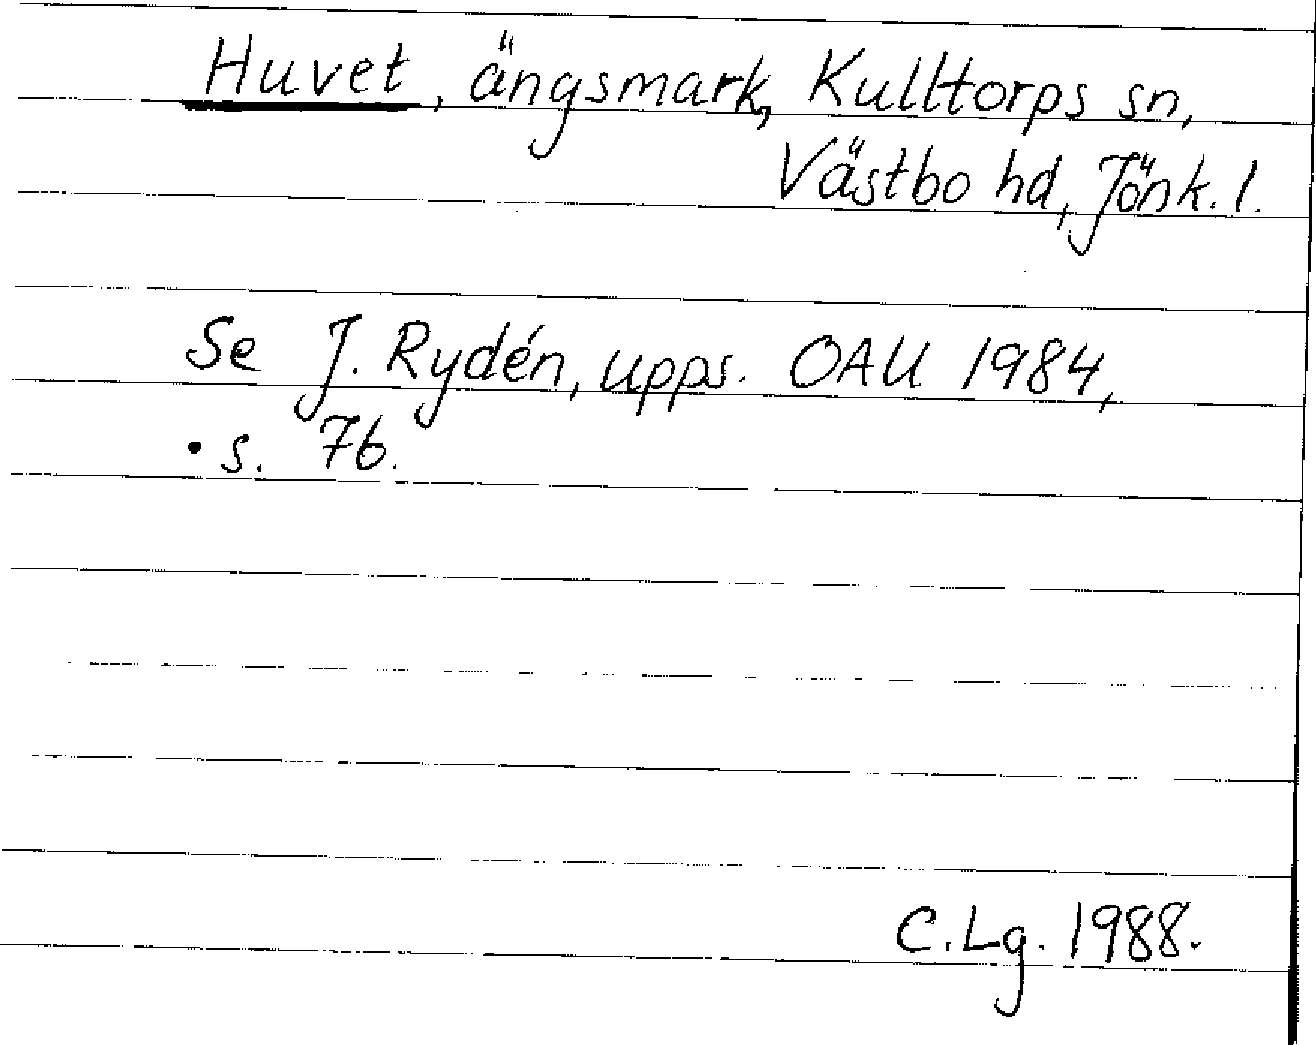 Huvet, ängsmark, Kulltorps sn,
Västbo hd, Jönk. l.
Se J. Rydén, upps. OAU 1984,
s. 76.
C.Lg. 1988.